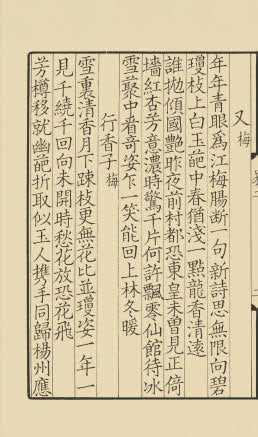 又 梅
年年青眼爲江梅腸斷一句新詩思無限向碧
瓊枝上白玉葩中春猶淺一點龍香清遠
誰抛傾國艷昨夜前村都恐東皇未曾見正倚
墻紅杏芳意濃時驚千片何許飄零仙館待冰
雪叢中看奇姿乍一笑能回上林冬暖
行香子 梅
雪裏清香月下踈枝更無花比並瓊姿一年一
見千繞千回向未開時愁花放恐花飛
芳樽移就幽葩折取似玉人携手同歸楊州應